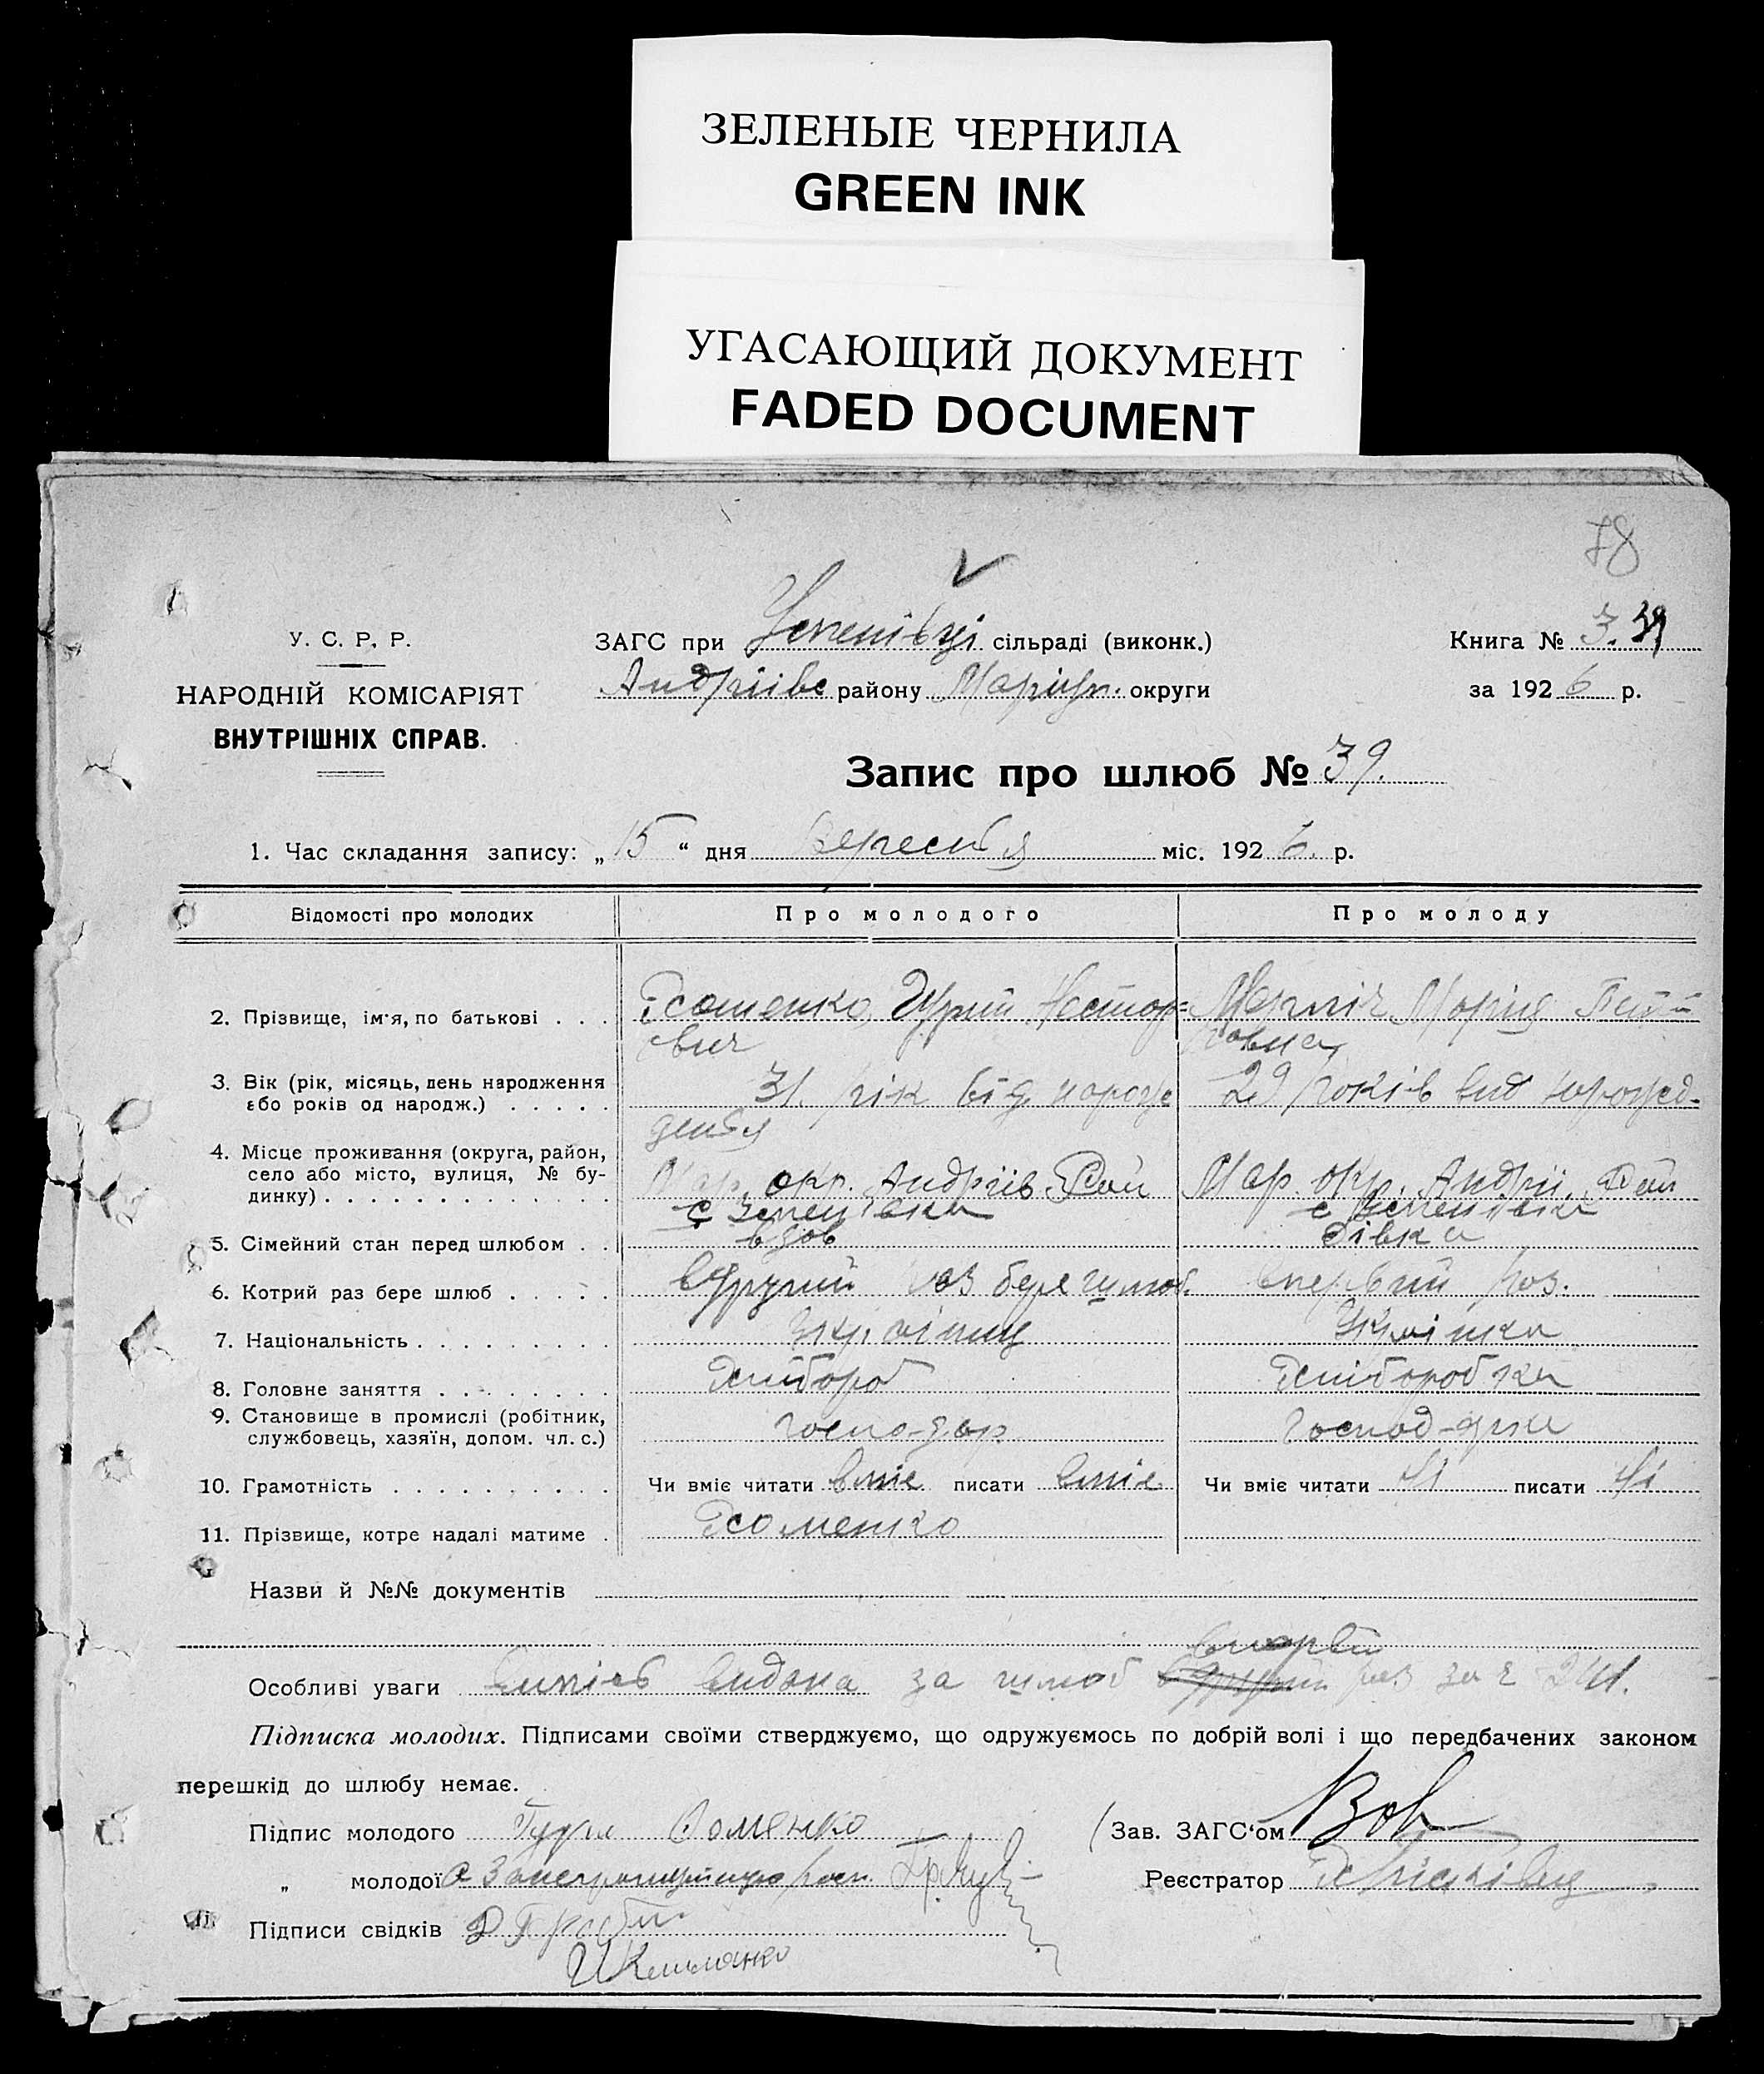 ЗЕЛЕНЫЕ ЧЕРНИЛА
GREEN INK
УГАСАЮЩИЙ ДОКУМЕНТ
FADED DOCUMENT
78
У. С. Р. Р.
НАРОДНІЙ КОМІСАРІЯТ
ВНУТРІШНІХ СПРАВ.
ЗАГС при Успенівці сільраді (виконк.)
Андріівс району Маріуп. округи
Книга № 3.
за 1926 р.
Запис про шлюб № 39.
1. Час складання запису: „15“ дня Вересня міс. 1926. р.
Відомості про молодих
Про молодого
Про молоду
2. Прізвище, ім'я, по батькові . . .
Нестор=
ович
Марія
3. Вік (рік, місяць, день народження
або років од народж.) . . . . .
31. рік від народж
дення
29 років вид народжд-
4. Місце проживання (округа, район,
село або місто, вулиця, № бу-
динку) . . . . . . . . . . . . .
Мар. окр. Андріів. Рай
с Успенівка
Мар. окр. Андрії. Рай
с Успенівка
5. Сімейний стан перед шлюбом . .
вдов
дівка
6. Котрий раз бере шлюб . . . . .
вдругий раз бере шлюб.
вперВий раз.
7. Національність . . . . . . . . .
Українц
Украінка
8. Головне заняття . . . . . . . .
Хлібороб
Хліборобка
9. Становище в промислі (робітник,
службовець, хазяїн, допом. чл. с.)
госпо-дар
Господ-арка
10. Грамотність . . . . . . . . . .
Чи вміє читати вміє писати вміє
Чи вміє читати Ні писати Ні
11. Прізвище, котре надалі матиме .
Хоменко
Назви й №№ документів
Особливі уваги видана за шлюб раз за № 241.
Підписка молодих. Підписами своїми стверджуємо, що одружуємось по добрій волі і що передбачених законом
перешкід до шлюбу немає.
Підпис молодого Хоменко
„ молодої
Підписи свідків
Зав. ЗАГС‘ом
Реєстратор